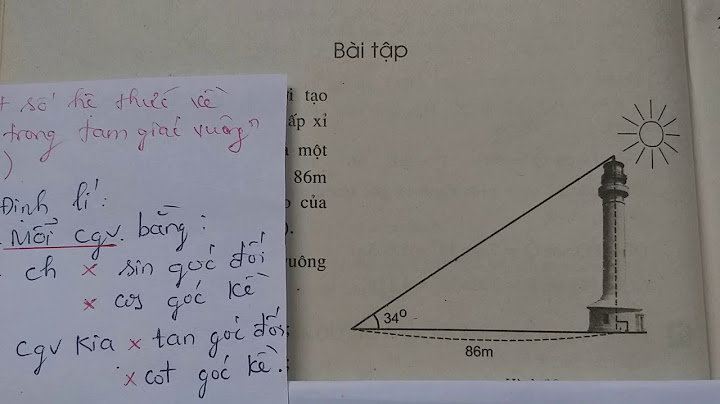 Bài tập
t số hệ thức về
trong tam giác vuông"
)
Định lí:
Mỗi cgv bằng:
ch x sin góc đối
x cos góc kề
cgv kia x tan góc đối;
x cot góc kề.
i tạo
ấp xỉ
một
86m
của
).
uông
34°
86m